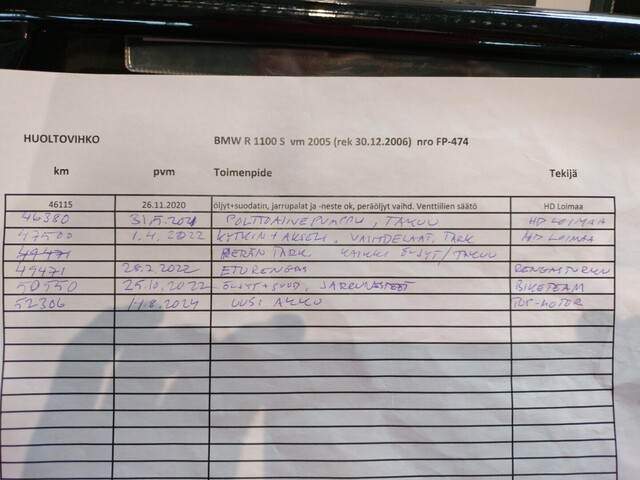 HUOLTOVIHKO BMW R 1100 S vm 2005 (rek 30.12.2006) nro FP-474
km pvm Toimenpide Tekijä
46115 26.11.2020 öljyt+suodatin, jarrupalat ja -neste ok, peräöljyt vaihd. Venttiilien säätö HD Loimaa
46380 POLTTOAINEPUMPPU, TAKUU HD LOIMAA
47500 1.4.2022 KYTKIN + AKSELI, VAIHDELAAT. TARK HD LOIMAA
49471 PERÄN TARK KAIKKI ÖLJYT / TAKUU
49471 28.7.2022 ETURENGAS RENGASTURKU
50550 25.10.2022 ÖLJYT + SUOD, JARRUNESTEET BIKETEAM
52306 11.8.2024 UUSI AKKU